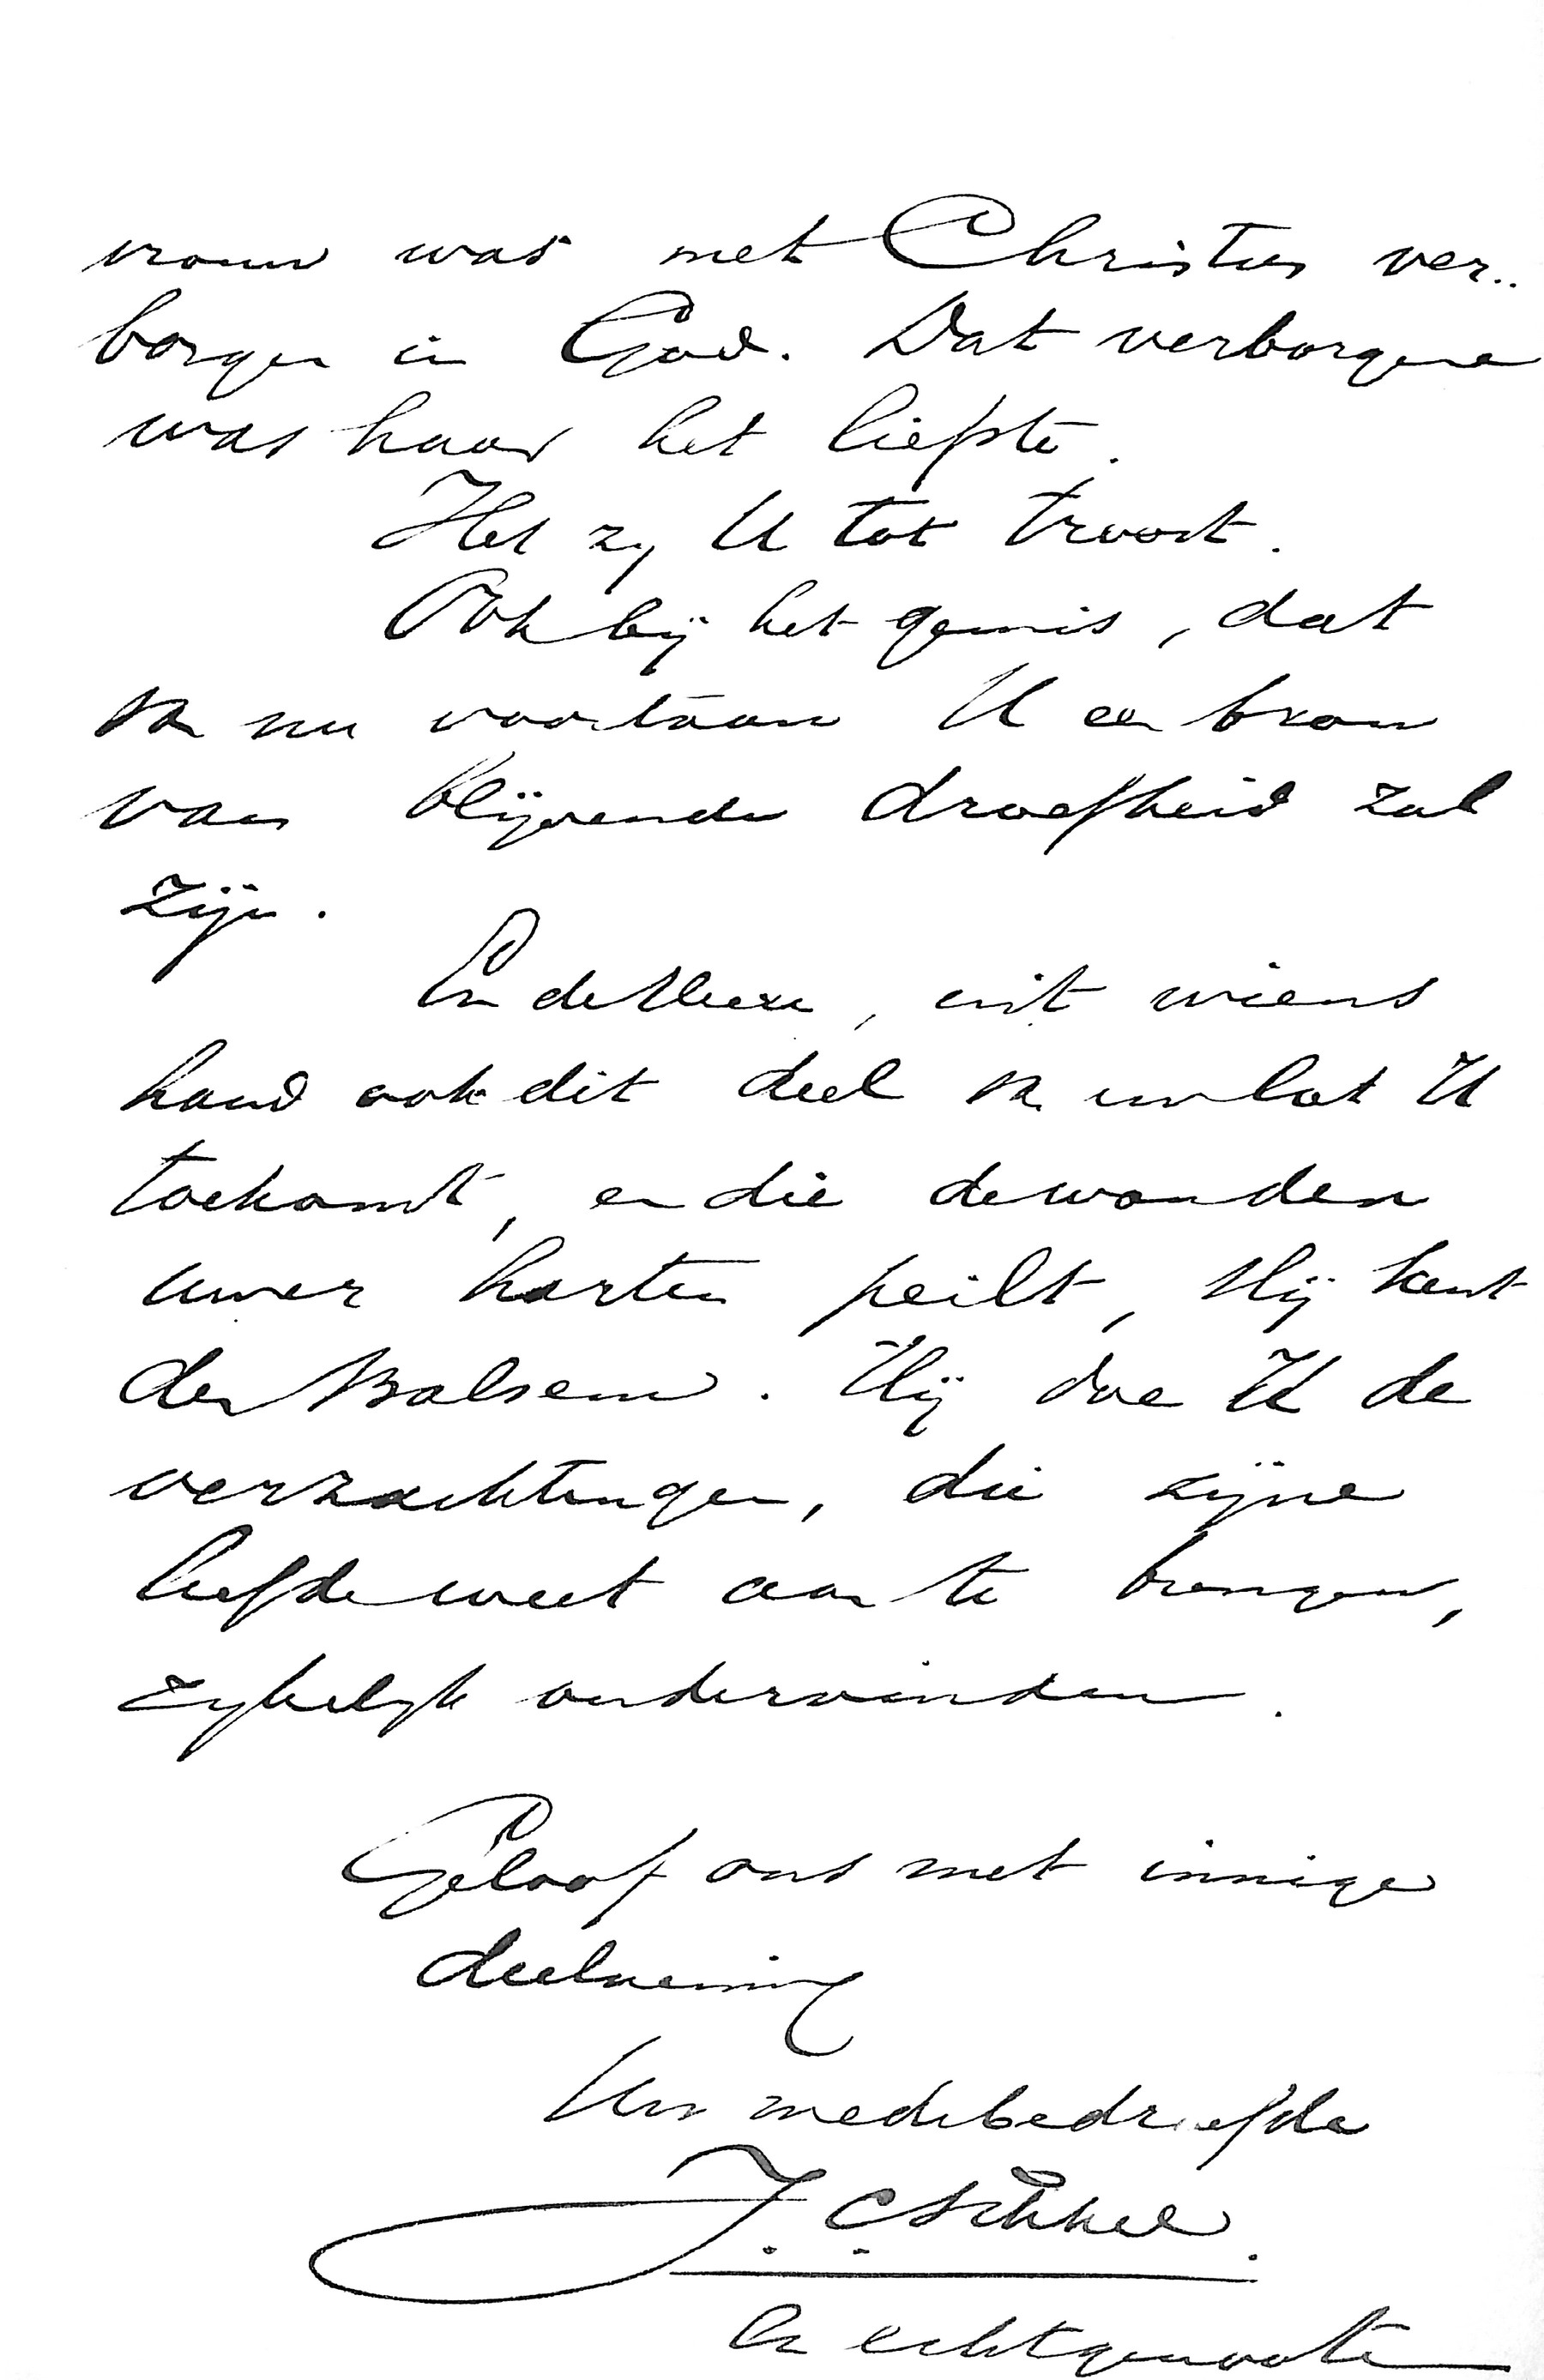 vrouw was met Christus ver..
borgen in God. Dat verborgene
was haar het liefste.
Het zij U tot troost.
Ook bij het gemis, dat
nu voortaan U een bron
van blijvende droefheid zal
zijn.
En de Heere, uit wiens
hand ook dit deel van uw lot U
toekomt, en die de wonden
uwer harten peilt, Hij kent
den Balsem. Hij doe U de
verzachtingen, die zijne
liefde weet aan te brengen,
ondervinden.
Geloof ons met innige
deelneming
Uw medebedroefde
J. C. Sikkel.
en echtgenoote